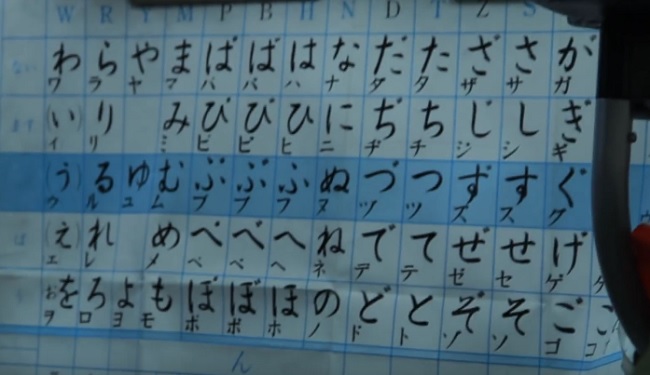 W R Y M P B H N D T Z S
わ ら や ま ぱ ば は な だ た ざ さ が
ワ ラ ヤ マ パ バ ハ ナ ダ タ ザ サ ガ
(い) り み ぴ び ひ に ぢ ち じ し ぎ
イ リ ミ ピ ビ ヒ ニ ヂ チ ジ シ ギ
(う) る ゆ む ぷ ぶ ふ ぬ づ つ ず す ぐ
ウ ル ユ ム プ ブ フ ヌ ヅ ツ ズ ス グ
(え) れ め ぺ べ へ ね で て ぜ せ げ
エ レ メ ペ ベ ヘ ネ デ テ ゼ セ ゲ
を ろ よ も ぽ ぼ ほ の ど と ぞ そ ご
ヲ ロ ヨ モ ポ ボ ホ ノ ド ト ゾ ソ ゴ コ
ん